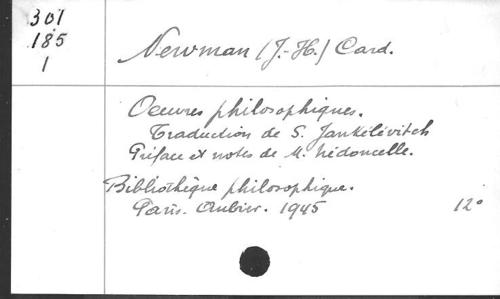 301
185
1
Newman (J.-H.) Card.
Oeuvres philosophiques.
Traduction de S. Jankélévitch
Préface et notes de M. Nédoncelle.
Bibliothèque philosophique.
Paris. Aubier. 1945 12°